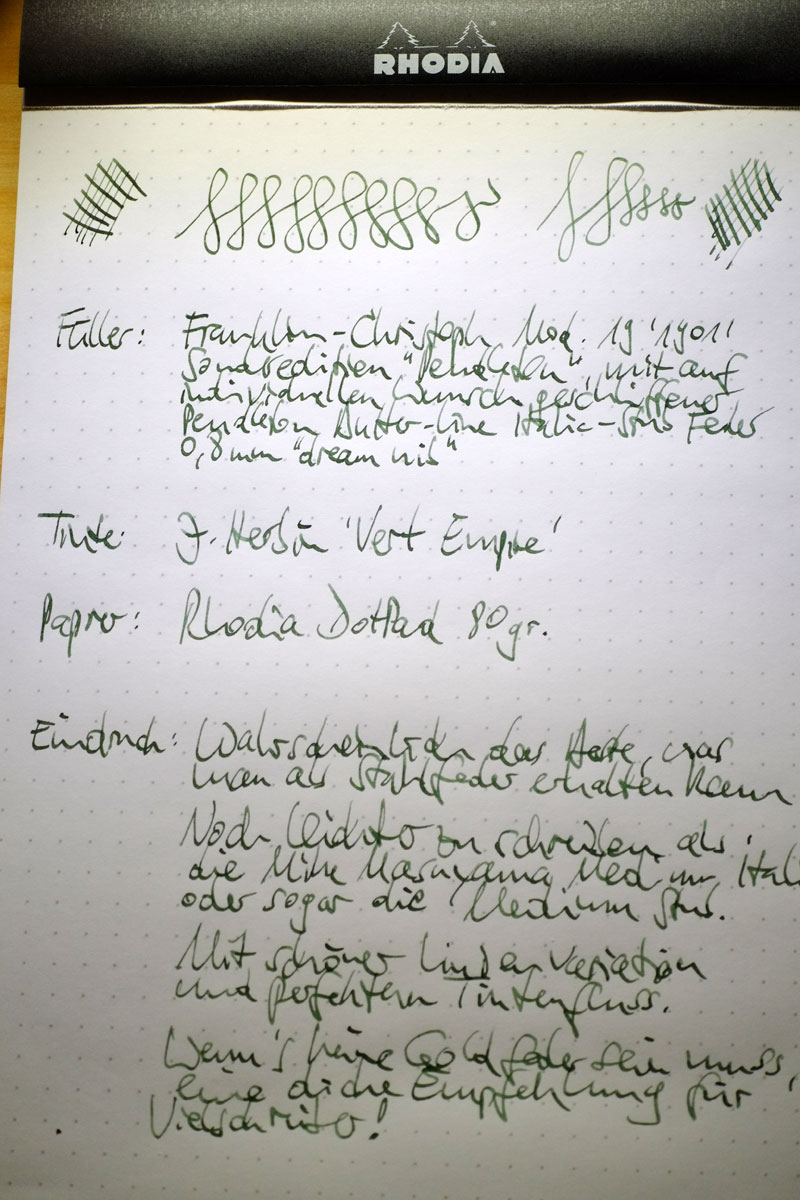 RHODIA
Füller: Franklin-Christoph Mod. 19 '1901'
Sonderedition "Pendleton", mit auf
individuellen Wunsch geschliffener
Pendleton Butter-line Italic-Stub Feder
0,8 mm "dream nib"
Tinte: J. Herbin 'Vert Empire'
Papier: Rhodia DotPad 80 gr.
Eindruck: Wahrscheinlich das Beste, was
man als Stahlfeder erhalten kann
Noch leichter zu schreiben als
die Mike Masuyama Medium Itali
oder sogar die Medium Stub.
Mit schöner Linienvariation
und perfektem Tintenfluss.
Wenn's keine Goldfeder sein muss,
eine dicke Empfehlung für
Vielschreiber!